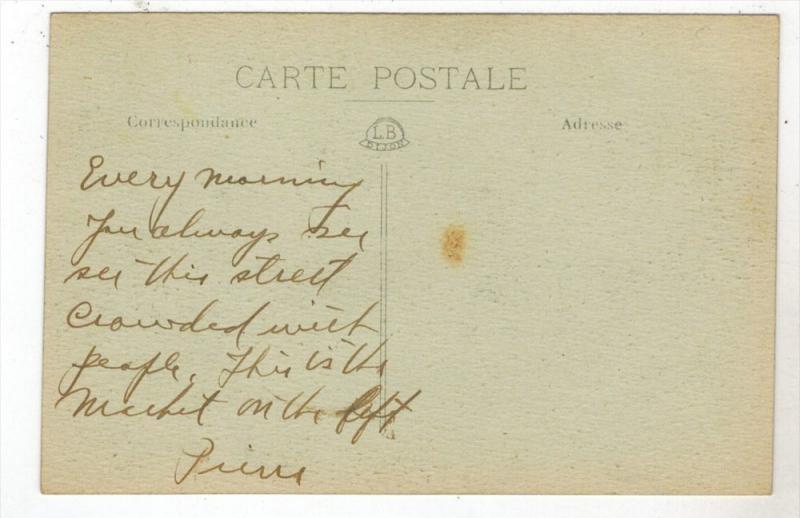 CARTE POSTALE
Correspondance
Adresse
LB
DIJON
Every morning
you always see
see this street
crowded with
people. This is the
Market on the left
Pierre